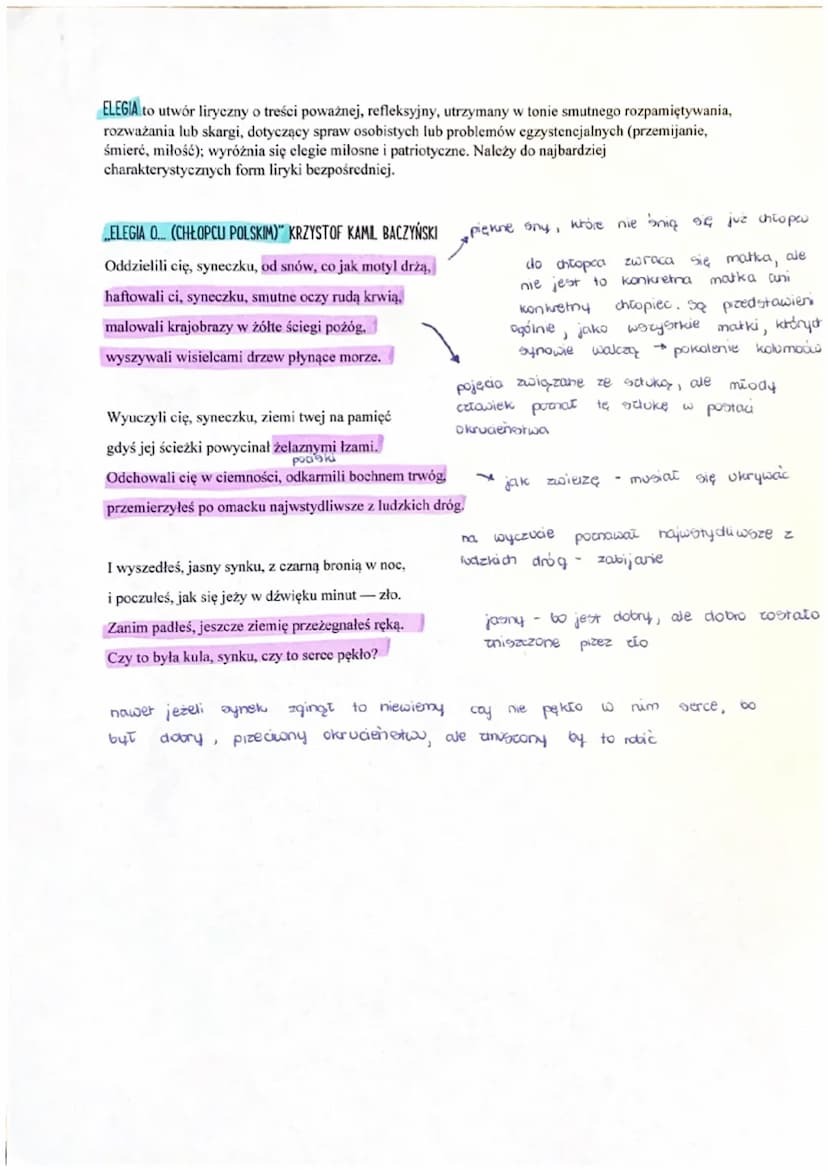 ELEGIA to utwór liryczny o treści poważnej, refleksyjny, utrzymany w tonie smutnego rozpamiętywania,
rozważania lub skargi, dotyczący spraw osobistych lub problemów egzystencjalnych (przemijanie,
śmierć, miłość); wyróżnia się elegie miłosne i patriotyczne. Należy do najbardziej
charakterystycznych form liryki bezpośredniej.
„ELEGIA O... (CHŁOPCU POLSKIM)” KRZYSTOF KAMIL BACZYŃSKI
piękne sny, które nie śnią się już chłopcu
Oddzielili cię, syneczku, od snów, co jak motyl drżą,
haftowali ci, syneczku, smutne oczy rudą krwią,
malowali krajobrazy w żółte ściegi pożóg,
wyszywali wisielcami drzew płynące morze.
do chłopca zwraca się matka, ale
nie jest to konkretna matka ani
konkretny chłopiec. Są przedstawieni
ogólnie, jako wszystkie matki, których
synowie walczą → pokolenie kolumbów
pojęcia związane ze sztuką, ale młody
człowiek poznał tę sztukę w postaci
okrucieństwa
Wyuczyli cię, syneczku, ziemi twej na pamięć
gdyś jej ścieżki powycinał żelaznymi łzami.
pociski
Odchowali cię w ciemności, odkarmili bochnem trwóg,
przemierzyłeś po omacku najwstydliwsze z ludzkich dróg.
→ jak zwierzę - musiał się ukrywać
na wyczucie poznawał najwstydliwsze z
ludzkich dróg - zabijanie
I wyszedłeś, jasny synku, z czarną bronią w noc,
i poczułeś, jak się jeży w dźwięku minut — zło.
Zanim padłeś, jeszcze ziemię przeżegnałeś ręką.
Czy to była kula, synku, czy to serce pękło?
jasny - bo jest dobry, ale dobro zostało
zniszczone przez zło
nawet jeżeli synek zginął to niewiemy czy nie pękło w nim serce, bo
był dobry, przeciwny okrucieństwu, ale zmuszony by to robić